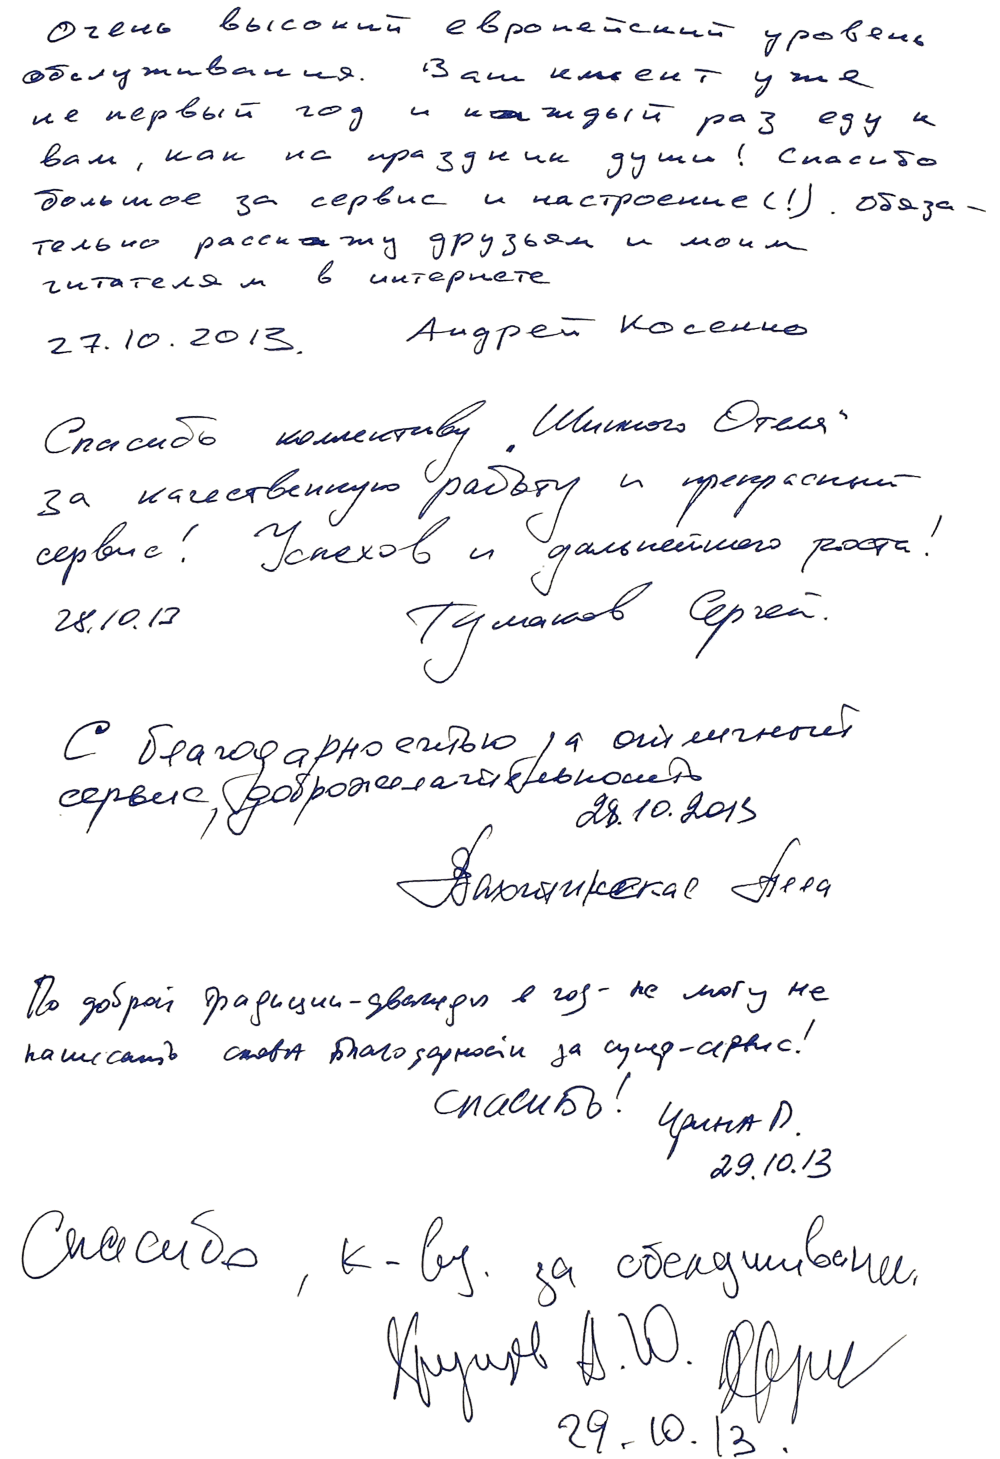 Очень высокий европейский уровень
обслуживания. Ваш клиент уже
не первый год и каждый раз еду к
вам, как на праздник души! Спасибо
большое за сервис и настроение(!). Обяза-
тельно расскажу друзьям и моим
читателям в интернете
27.10.2013. Андрей Косенко
Спасибо коллективу „Шинного Отеля"
за качественную работу и прекрасный
сервис! Успехов и дальнейшего роста!
28.10.13 Тумаков Сергей.
С благодарностью за отличный
сервис, доброжелательность
28.10.2013
Алла
По доброй традиции - дважды в год - не могу не
написать слова благодарности за супер-сервис!
Спасибо! Ирина П.
29.10.13
Спасибо, к-ву. за обслуживани.
А.Ю.
29.10.13.